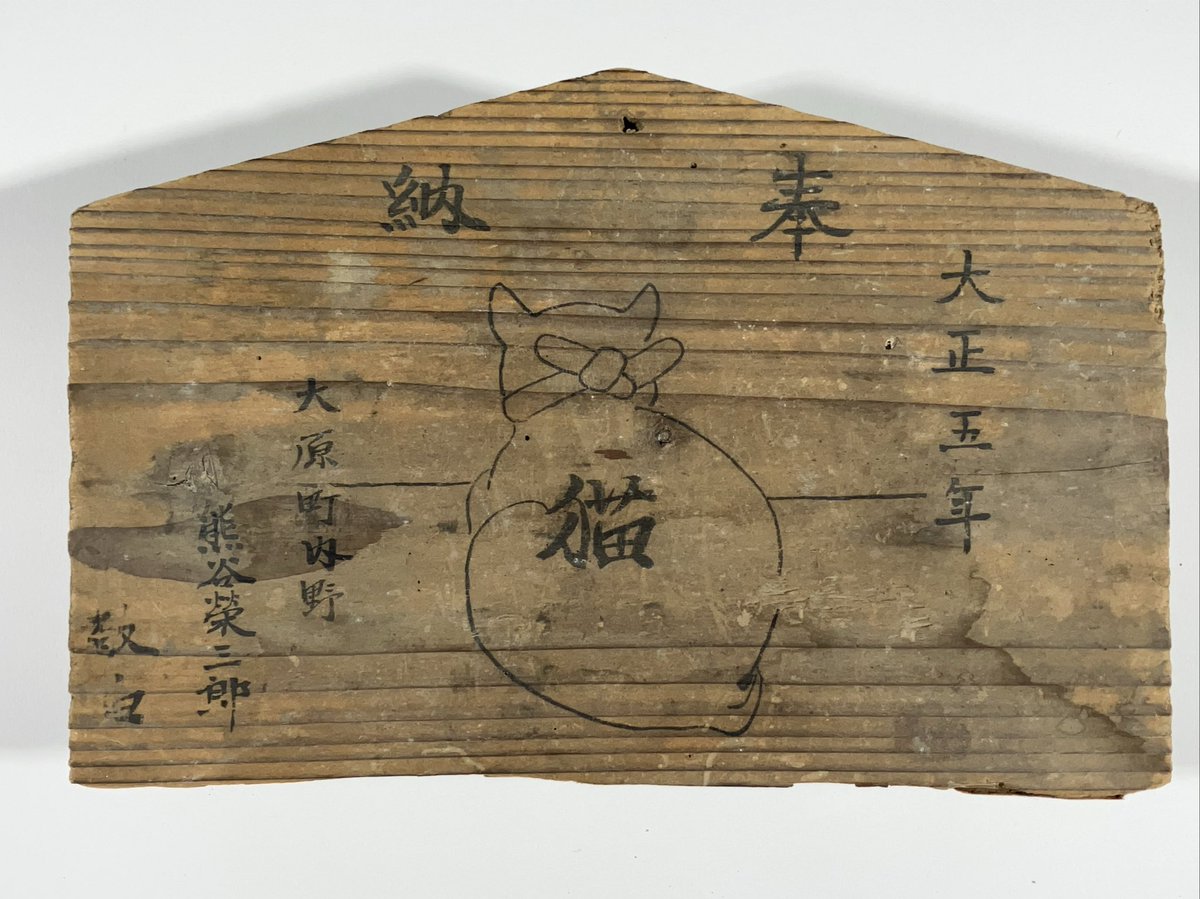 奉納
大正五年
猫
大原町内野
熊谷榮三郎
敬白